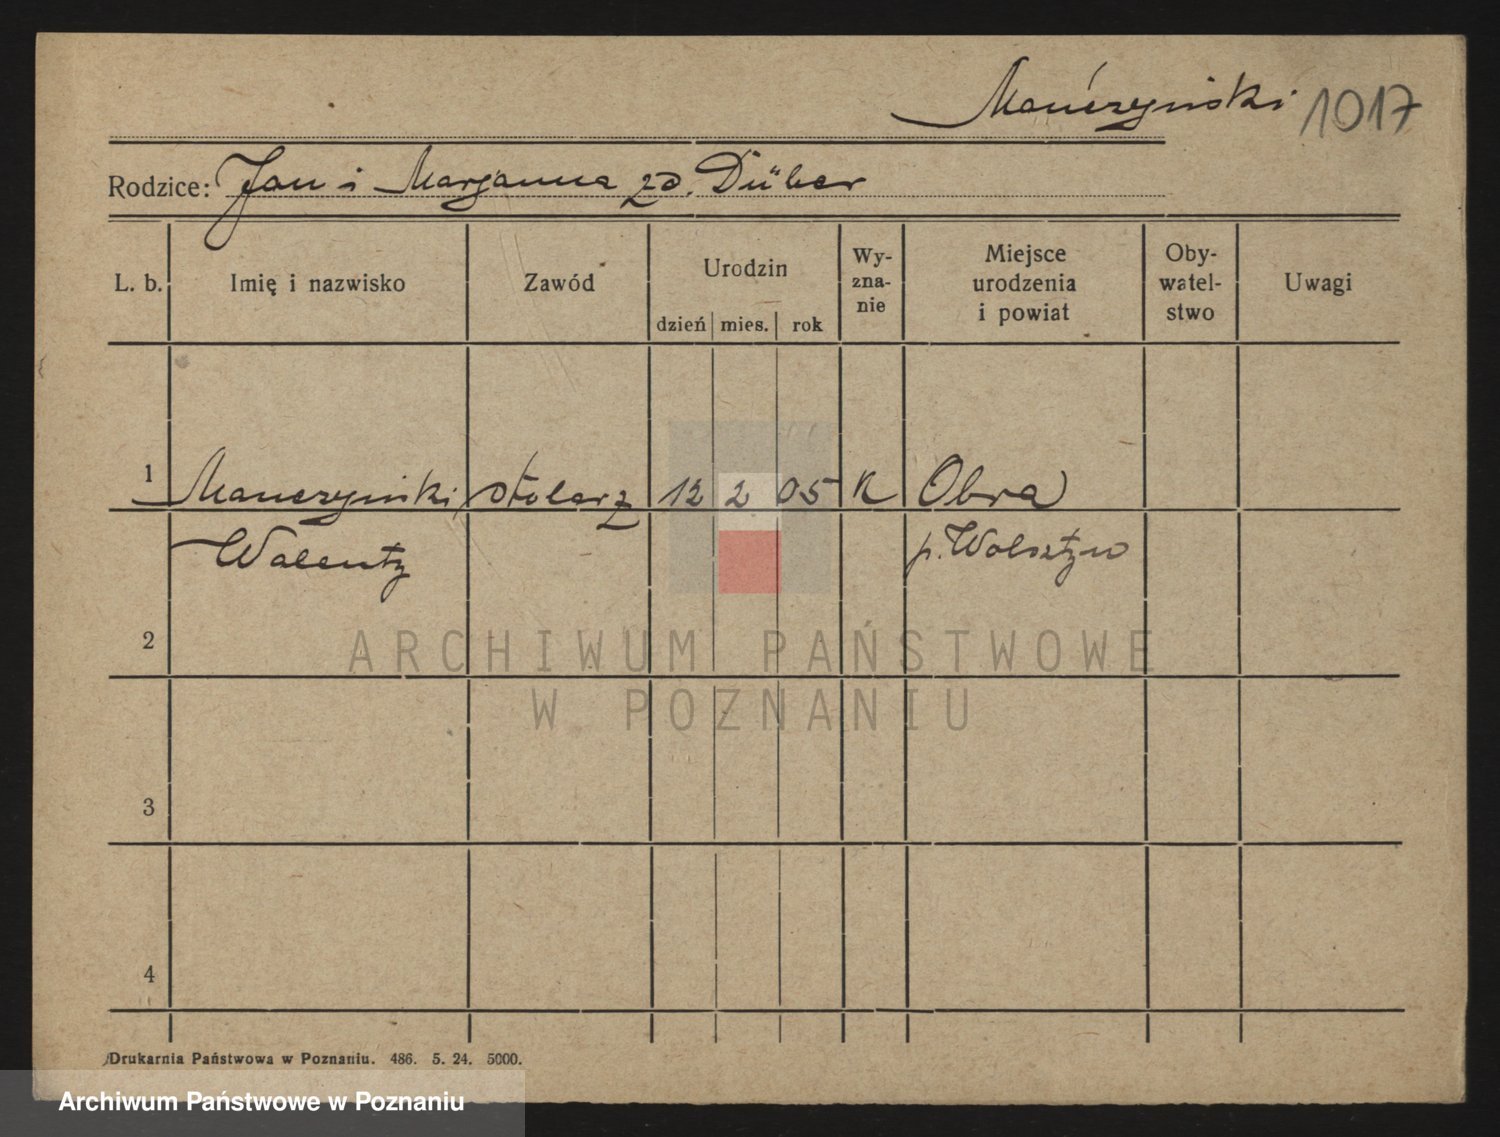 Mańczyński 1017
Rodzice: Jan i Marjanna zd. Düber
L. b.
Imię i nazwisko
Zawód
Urodzin
dzień mies. rok
Wy-
zna-
nie
Miejsce
urodzenia
i powiat
Oby-
watel-
stwo
Uwagi
1 Manczyński stolarz 12 2 05 K Obra
Walenty p. Wolsztyn
2
ARCHIWUM PAŃSTWOWE
W POZNANIU
3
4
Drukarnia Państwowa w Poznaniu. 486. 5. 24. 5000.
Archiwum Państwowe w Poznaniu